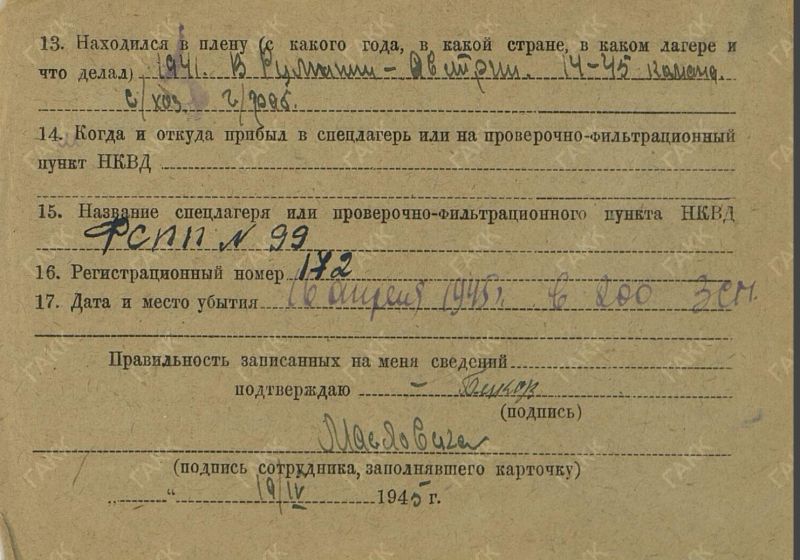 13. Находился в плену (с какого года, в какой стране, в каком лагере и
что делал) 1941. В Румынии – Австрии. команд.
с/хоз.
14. Когда и откуда прибыл в спецлагерь или на проверочно-фильтрационный
пункт НКВД
15. Название спецлагеря или проверочно-фильтрационного пункта НКВД
ФСПП N 99
16. Регистрационный номер 172
17. Дата и место убытия 16 апреля 1945г. в 200 ЗСП.
Правильность записанных на меня сведений
подтверждаю
(подпись)
(подпись сотрудника, заполнявшего карточку)
„ “ 19/IV 1945 г.